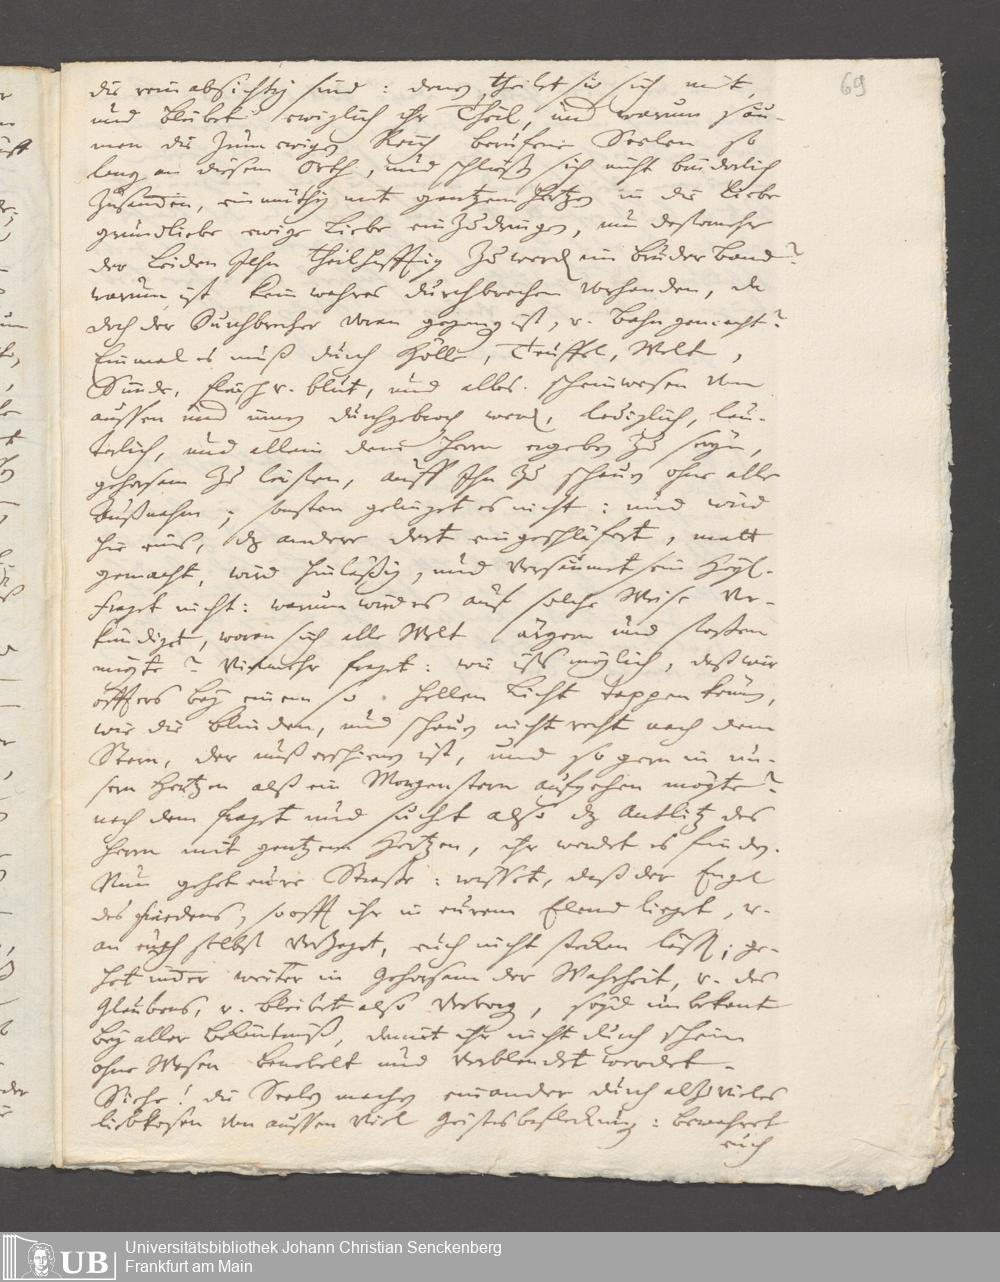 69
die reinabsichtig sind: denen theilet sie sich mit,
und bleibet ewiglich ihr Theil, und warum säu-
men die zum ewigen Reich berufene Seelen so
lang an diesem Orth, und schließen sich nicht brüderlich
Zusammen, einmüthig mit gantzem Hertzen in die Liebe
grundliebe ewige Liebe einzudringen, um destomehr
der Leiden Jesu theilhafftig zu werden im Brüder Band?
warum ist kein wahres durchbrechen vorhanden, da
doch der Durchbrecher voran gegangen ist, u. bahn gemacht?
Einmal es muß durch Hölle, Teuffel, Welt,
Sünde, fleisch u. blut, und alles scheinwesen von
aussen und innen durchgebrochen werden, lediglich, lau-
terlich, und allein dem Herrn ergeben zu seyn,
gehorsam zu leisten, auff Ihn zu schauen ohne alle
Außnahm; sonsten gelinget es nicht: und wird
hie eins, dz andere dort eingeschläfert, matt
gemacht, wird hinläßig, und versäumet sein Heyl.
fraget nicht: warum wird es auf solche Weise ver-
kündiget, woran sich alle Welt ärgern und stossen
mögte? Vielmehr fraget: wie ists möglich, daß wir
öffters bey einem so hellen Licht tappen können,
wie die blinden, und schauen nicht recht nach dem
Stern, der unß erschienen ist, und so gern in un-
sern Hertzen alß ein Morgenstern aufgehen mögte?
nach dem fraget und sucht also dz Antlitz des
Herrn mit gantzem Hertzen, ihr werdet es finden.
Nun gehet eure Strasse: wisset, daß der Engel
des friedens, so offt ihr in eurem Elend lieget, u.
an euch selbst verzaget, euch nicht stecken lässt; ge-
het immer weiter in Gehorsam der Wahrheit, u. des
Glaubens, u. bleibet also verborgen, seyd unbekant
bey aller bekäntniß, damit ihr nicht durch schein
ohne Wesen benebelt und verblendet werdet.
Siehe! die Seelen machen einander durch allzuvieles
liebkosen von aussen viel Geistesbefleckung: bewahret
euch
Universitätsbibliothek Johann Christian Senckenberg
Frankfurt am Main
UB